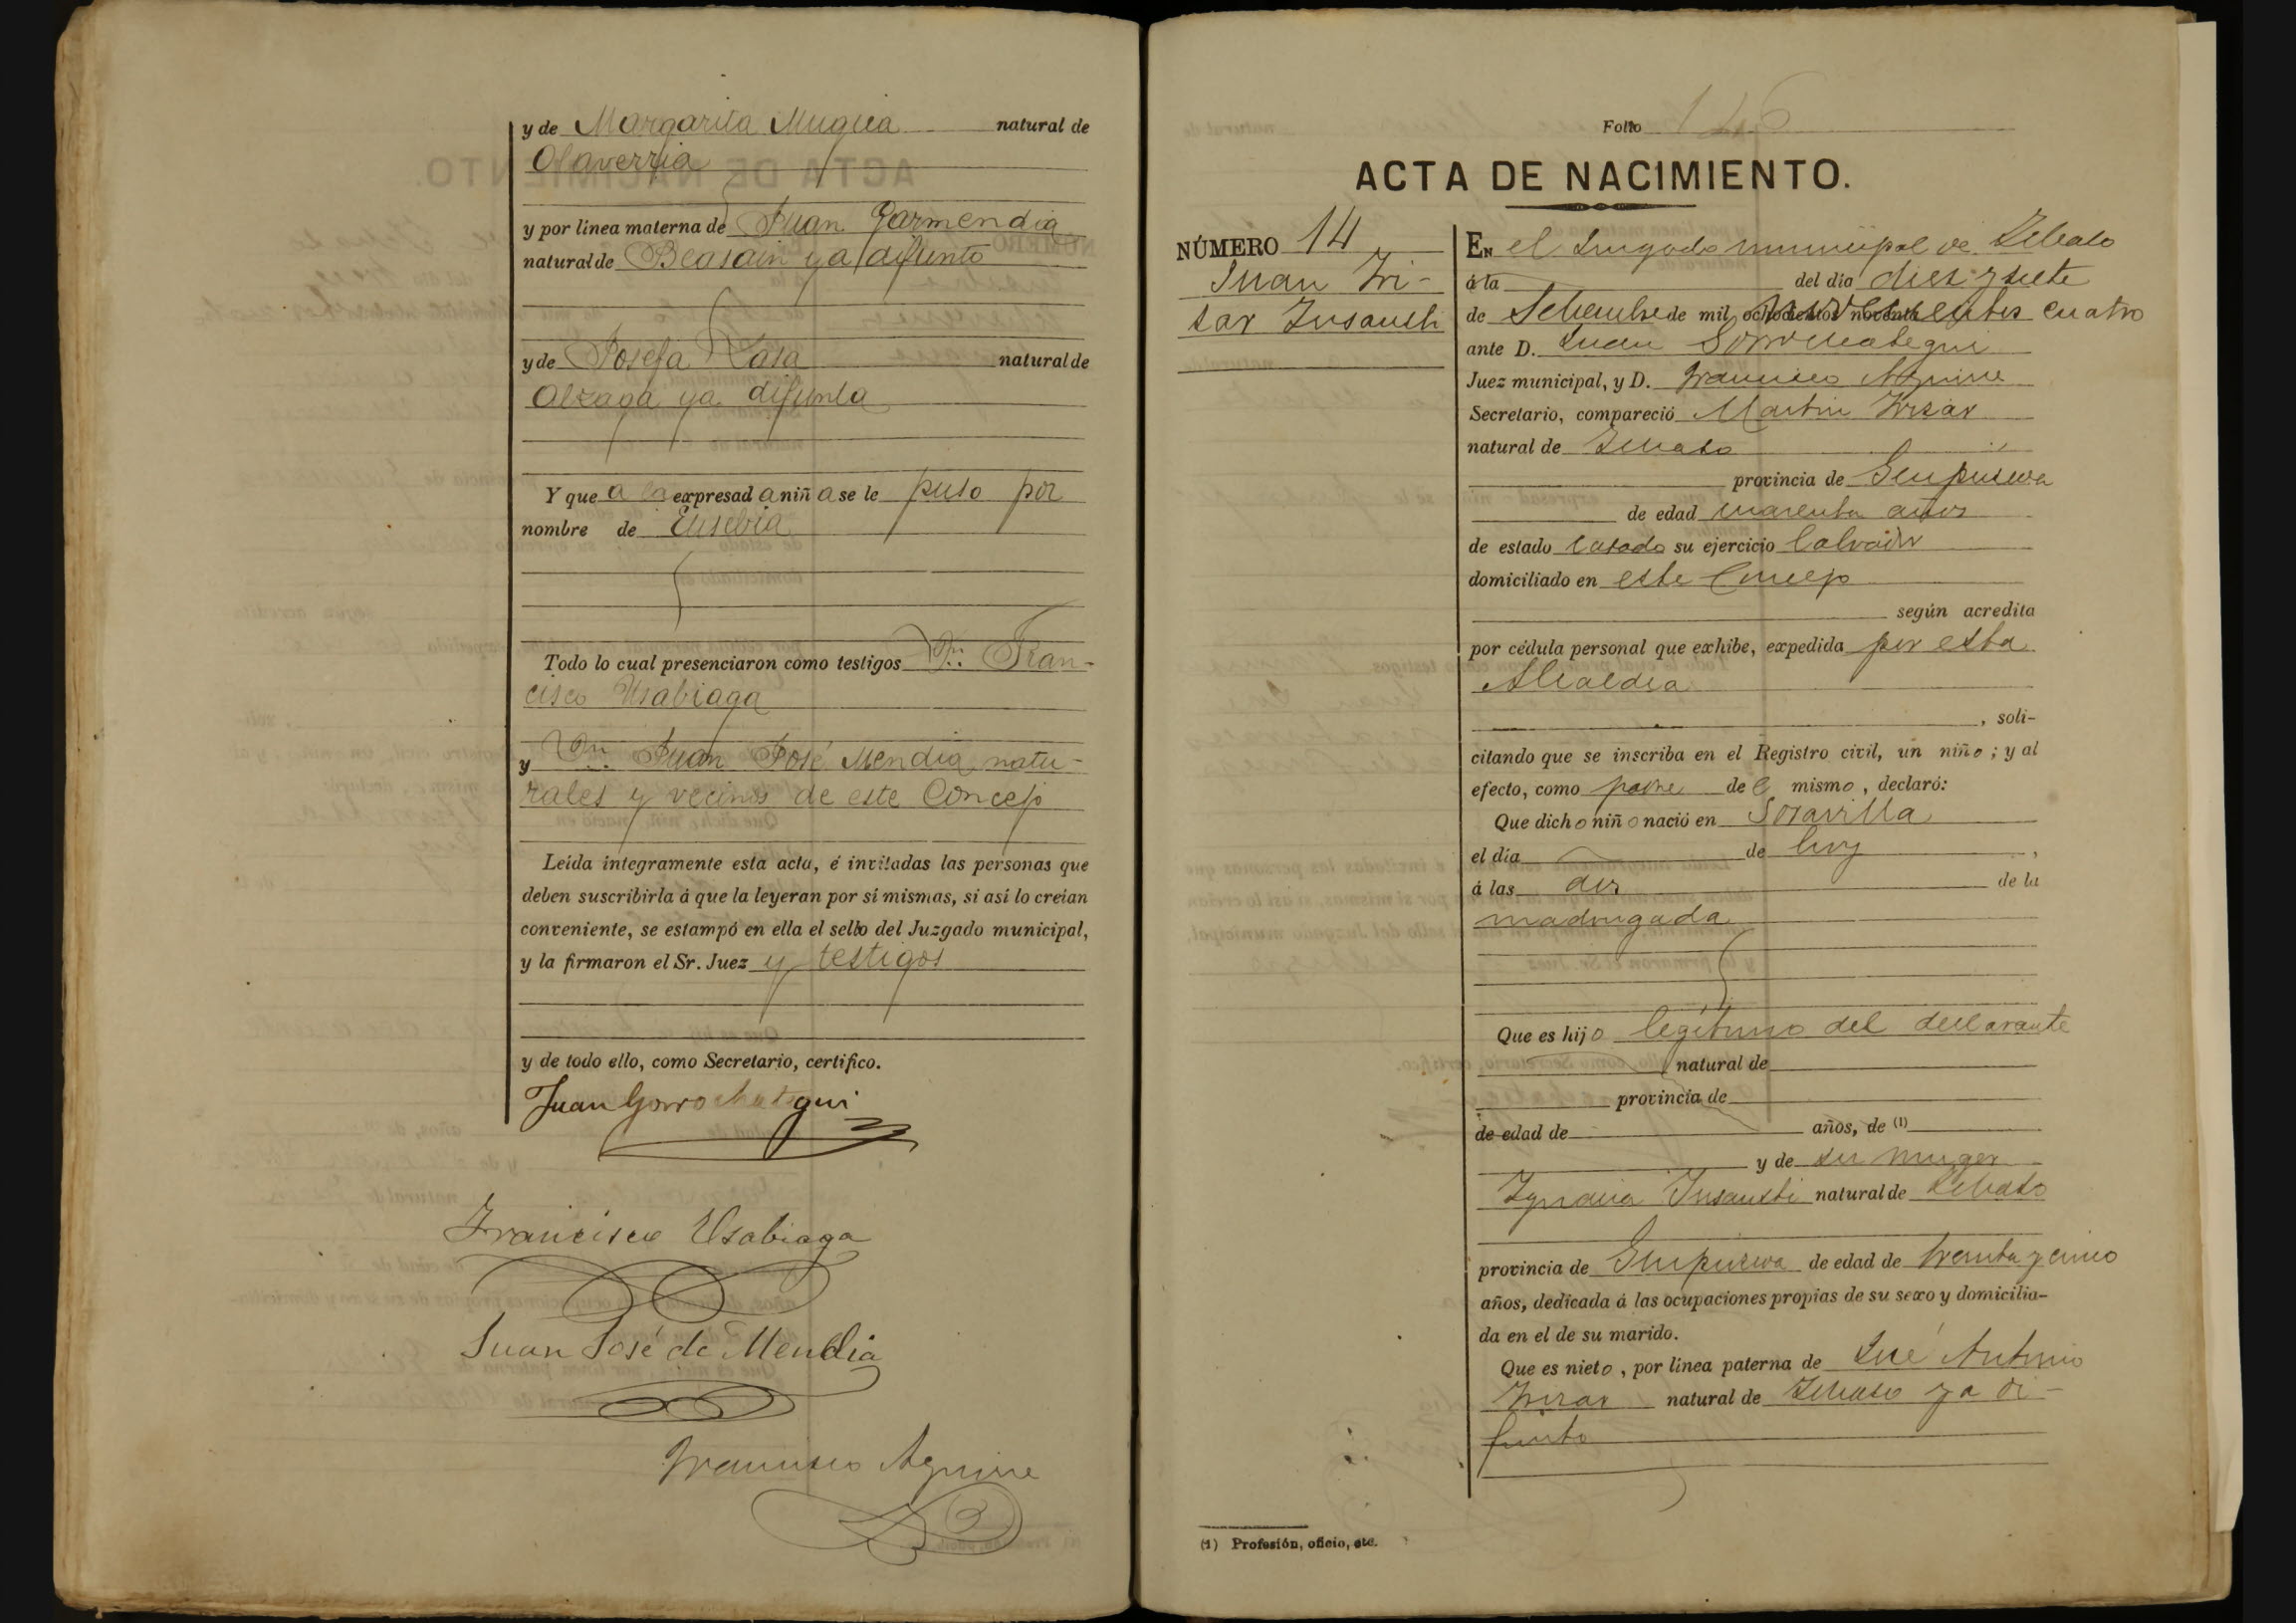 y de Margarita Mugica natural de
Olaverria
y por linea materna de Juan Garmendia
natural de Beasain ya difunto
y de Josefa Lasa natural de
Alzaga ya difunta
Y que a la expresad a niñ a se le puso por
nombre de Eusebia
Todo lo cual presenciaron como testigos Dn. Fran-
cisco Usabiaga
y Dn. Juan José Mendia natu-
rales y vecinos de este Concejo
Leída íntegramente esta acta, é invitadas las personas que
deben suscribirla á que la leyeran por sí mismas, si así lo creían
conveniente, se estampó en ella el sello del Juzgado municipal,
y la firmaron el Sr. Juez y testigos
y de todo ello, como Secretario, certifico.
Juan Gorrochategui
Francisco Usabiaga
Juan José de Mendia
Francisco Aguirre
Folio 146
ACTA DE NACIMIENTO.
NÚMERO 14
Juan Iri-
zar Insausti
EN el Juzgado municipal de
á la del dia diez y siete
de Setiembre de mil ochocientos noventa novecientos cuatro
ante D. Juan Gorrochategui
Juez municipal, y D. Francisco Aguirre
Secretario, compareció Martin Irizar
natural de
provincia de Guipuzcoa
de edad cuarenta años
de estado casado su ejercicio labrador
domiciliado en este Concejo
según acredita
por cédula personal que exhibe, expedida por esta
Alcaldia
, soli-
citando que se inscriba en el Registro civil, un niño ; y al
efecto, como padre de l mismo , declaró:
Que dich o niñ o nació en Soravilla
el día de hoy ,
á las dos de la
madrugada
Que es hij o legitimo del declarante
natural de
provincia de
de edad de años, de (1)
y de su muger
Ignacia Insausti natural de
provincia de Guipuzcoa de edad de treinta y cinco
años, dedicada á las ocupaciones propias de su sexo y domicilia-
da en el de su marido.
Que es niet o , por linea paterna de José Antonio
Irizar natural de ya di-
funto
(1) Profesión, oficio, etc.